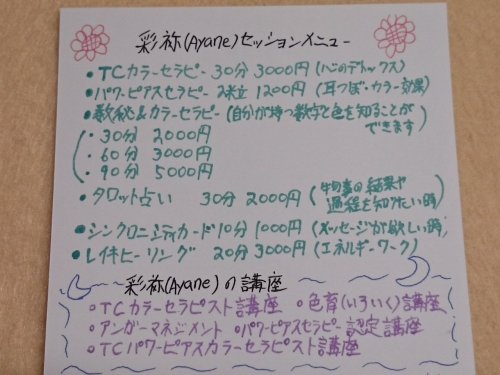 彩祢(Ayane)セッションメニュー
・TCカラーセラピー 30分 3000円 (心のデトックス)
・パワーピアスセラピー 2粒 1200円 (耳つぼ・カラー効果)
・数秘&カラーセラピー (自分が持つ数字と色を知ることが
できます)
・30分 2000円
・60分 3000円
・90分 5000円
・タロット占い 30分 2000円 (物事の結果や
過程を知りたい時)
・シンクロニシティカード 10分 1000円 (メッセージが欲しい時)
・レイキヒーリング 20分 3000円 (エネルギーワーク)
彩祢(Ayane)の講座
○TCカラーセラピスト講座 ○色育(いろいく)講座
○アンガーマネジメント ○パワーピアスセラピー認定講座
○TCパワーピアスカラーセラピスト講座